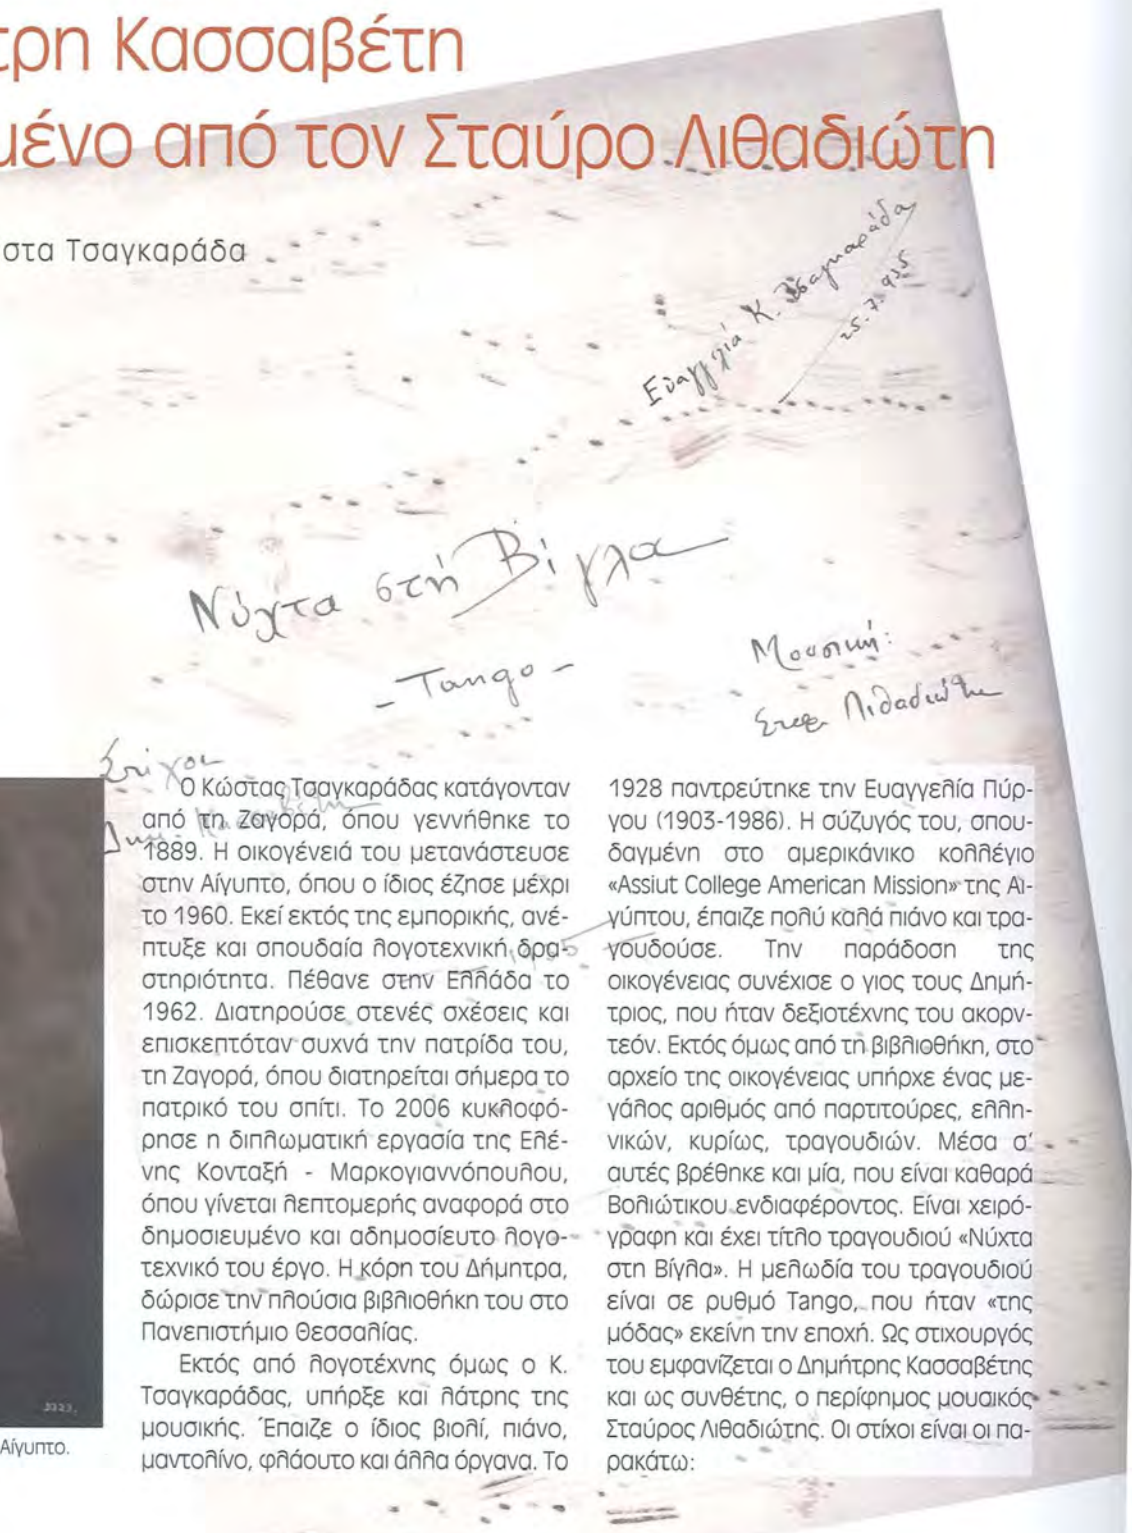 τρη Κασσαβέτη
μένο από τον Σταύρο Λιθαδιώτη
στα Τσαγκαράδα
Ευαγγλία Κ. Τσαγκαράδα
25.7.935
Νύχτα στή Βίγλα
- Tango -
Μουσική:
Σταυ. Λιθαδιώτη
Στίχοι
Δημ. Κασσαβέτη
Ο Κώστας Τσαγκαράδας κατάγονταν
από τη Ζαγορά, όπου γεννήθηκε το
1889. Η οικογένειά του μετανάστευσε
στην Αίγυπτο, όπου ο ίδιος έζησε μέχρι
το 1960. Εκεί εκτός της εμπορικής, ανέ-
πτυξε και σπουδαία λογοτεχνική δρα-
στηριότητα. Πέθανε στην Ελλάδα το
1962. Διατηρούσε στενές σχέσεις και
επισκεπτόταν συχνά την πατρίδα του,
τη Ζαγορά, όπου διατηρείται σήμερα το
πατρικό του σπίτι. Το 2006 κυκλοφό-
ρησε η διπλωματική εργασία της Ελέ-
νης Κονταξή - Μαρκογιαννόπουλου,
όπου γίνεται λεπτομερής αναφορά στο
δημοσιευμένο και αδημοσίευτο λογο-
τεχνικό του έργο. Η κόρη του Δήμητρα,
δώρισε την πλούσια βιβλιοθήκη του στο
Πανεπιστήμιο Θεσσαλίας.
Εκτός από λογοτέχνης όμως ο Κ.
Τσαγκαράδας, υπήρξε και λάτρης της
μουσικής. Έπαιζε ο ίδιος βιολί, πιάνο,
μαντολίνο, φλάουτο και άλλα όργανα. Το
1928 παντρεύτηκε την Ευαγγελία Πύρ-
γου (1903-1986). Η σύζυγός του, σπου-
δαγμένη στο αμερικάνικο κολλέγιο
«Assiut College American Mission» της Αι-
γύπτου, έπαιζε πολύ καλά πιάνο και τρα-
γουδούσε. Την παράδοση της
οικογένειας συνέχισε ο γιος τους Δημή-
τριος, που ήταν δεξιοτέχνης του ακορν-
τεόν. Εκτός όμως από τη βιβλιοθήκη, στο
αρχείο της οικογένειας υπήρχε ένας με-
γάλος αριθμός από παρτιτούρες, ελλη-
νικών, κυρίως, τραγουδιών. Μέσα σ'
αυτές βρέθηκε και μία, που είναι καθαρά
Βολιώτικου ενδιαφέροντος. Είναι χειρό-
γραφη και έχει τίτλο τραγουδιού «Νύχτα
στη Βίγλα». Η μελωδία του τραγουδιού
είναι σε ρυθμό Tango, που ήταν «της
μόδας» εκείνη την εποχή. Ως στιχουργός
του εμφανίζεται ο Δημήτρης Κασσαβέτης
και ως συνθέτης, ο περίφημος μουσικός
Σταύρος Λιθαδιώτης. Οι στίχοι είναι οι πα-
ρακάτω:
Αίγυπτο.